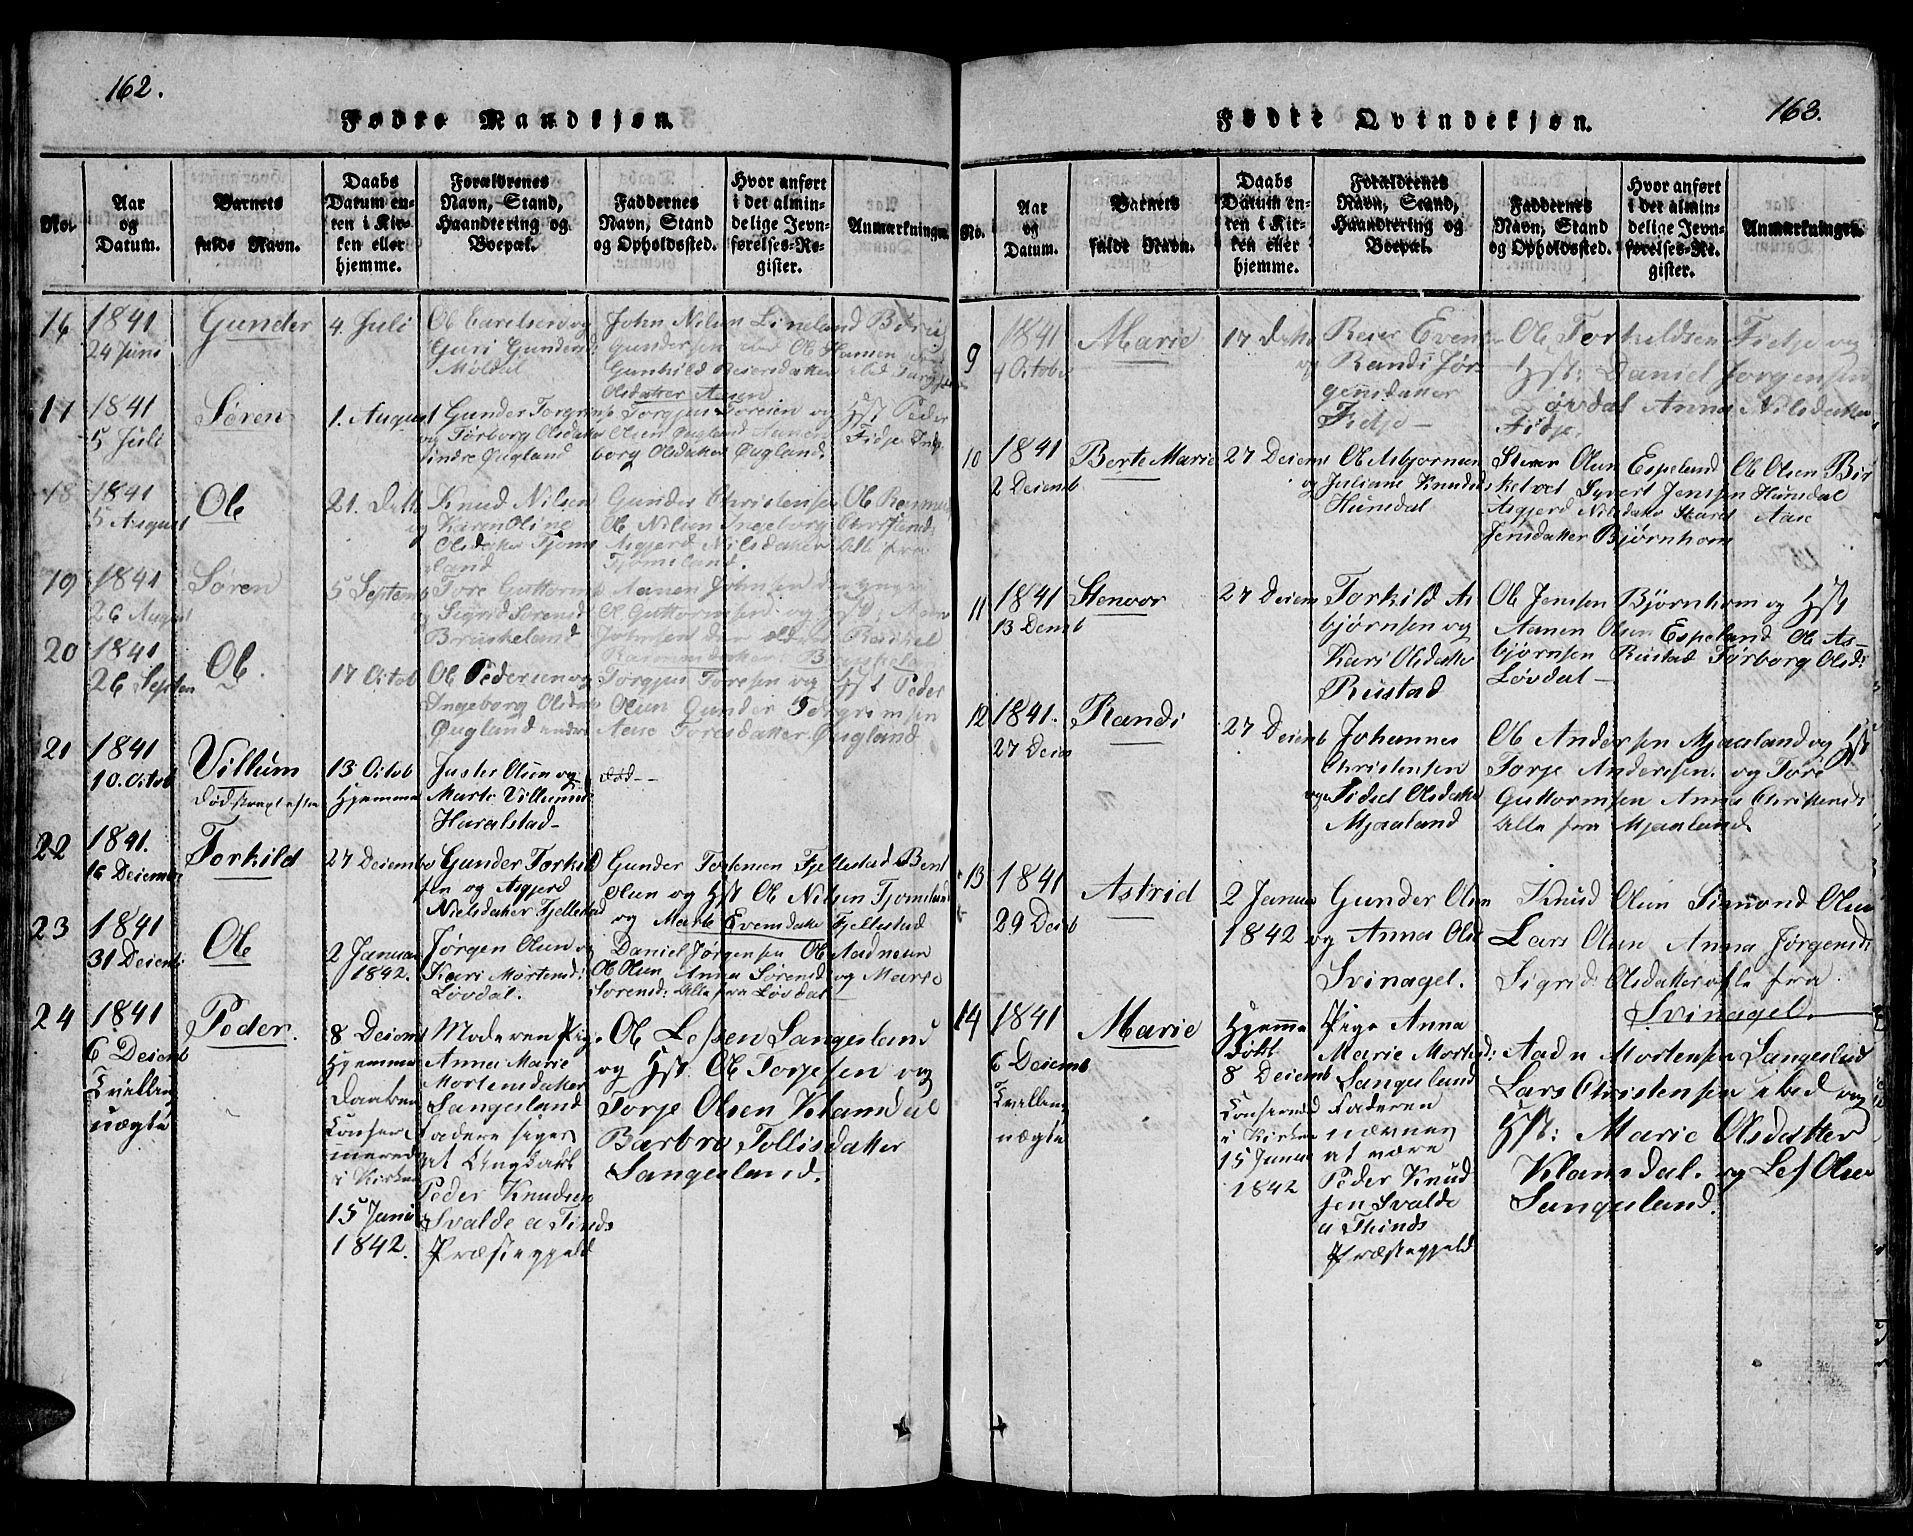 162.
Fødte Mandkjøn.
No.
Aar
og
Datum.
Barnets
fulde Navn.
Daabs
Datum en-
ten i Kir-
ken eller
hjemme.
Forældrenes
Navn, Stand,
Haandtering og
Boepæl.
Faddernes
Navn, Stand
og Opholdssted.
Hvor anført
i det almin-
delige Jevn-
førelses-Re-
gister.
Anmærkninger.
16
1841
24 Juni
Gunder
4. Juli
Guri Gundersd
Moldal
John Nilsen Lineland
Gundersen Ole Hansen
Gunhild Reiersdatter
Olsdatter Aasen
17
1841
5 Juli
Søren
1. August
Gunder Torgrims
og Tørborg Olsdatter
indre Øugland
Torgjus Toresen og Hst Peder
Olsen Øugland
borg Olsdatter Øugland.
18
1841
5 August
Ole
21. Dette
Knud Nilsen
og Karen Oline
Olsdatter Tjoms
land
Gunder Christensen Ole Rasmus
Ole Nilsen Ingeborg Christensd
Asgjerd Nilsdatter Alle fra
Tjomsland.
19
1841
26 August
Søren
5 Septemb
Tore Guttorms
og Sigrid Sørensd
Bruskeland
Aanen Johnsen den yngre
Ole Guttormsen og Hst; Aanen
Johnsen den eldre Rachel
Rasmusdatter Bruskeland
20
1841
26 Septem
Ole.
17 Octob
Ole Pedersen og
Ingeborg Olsdatter
Øugland indre
Torgjus Toresen og Hst Peder
Olsen Gunder Torgrimsen
Aase Toresdatter Øugland
21
1841
10. Octob
Villum
død strax efter
13 Octob
Hjemme
Juster Olsen og
Marte Villumsd
Haralstad
død
22
1841.
16 Deiembr
Torkild
27 Deiembr
Gunder Torkild
sen og Asgjerd
Nielsdatter Fjellestad
Gunder Torkensen Fjellestad Bent
Olsen og Hst Ole Nilsen Tjomsland
og Marte Evensdatter Fjellestad
23
1841
31 Deiemb
Ole
2 Januar
1842.
Jørgen Olsen og
Kari Mortensd:
Løvdal.
Daniel Jørgensen Ole Aadnesen
Ole Olsen Anna Sørensd og Marie
Sørensd: Alle fra Løvdal
24
1841
6 Deiemb
Tvilling
uægte
Peder.
8 Deiemb
Hjemme
Daaben
Confer-
mered
i Kirken
15 Juni
1842.
Moderen Pige
Anna Marie
Mortensdatter
Sangesland
Fadere siges
at Ungkarl
Peder Knudsen
Svalde a Finds
Præstegjeld
Ole Lessen Sangesland
og Hst Ole Torjesen og
Torje Olsen Klamsdal
Barbro Tollisdatter
Sangesland.
163.
Fødte Qvindekjøn.
No.
Aar
og
Datum.
Barnets
fulde Navn.
Daabs
Datum en-
ten i Kir-
ken eller
hjemme.
Forældrenes
Navn, Stand,
Haandtering og
Boepæl.
Faddernes
Navn, Stand
og Opholdssted.
Hvor anført
i det almin-
delige Jevn-
førelses-Re-
gister.
Anmærkninger.
9
1841
4 Octobr
Marie
17 dette
Reier Even
og Randi Jør
gensdatter
Fidje
Ole Torkildsen Fidje og
Hst: Daniel Jørgensen
Øvdal Anna Nilsdatter
Fidje.
10
1841
2 Deiemb
Berte Marie
27 Deiemb
Ole Asbjørnsen
og Juliane Knudsd
Hunsdal
Olsen Espeland Ole Olsen Bir
ketvet Syvert Jensen Hunsdal
Asgjerd Nilsdatter Aase
Jensdatter Bjørnhom
11
1841
13 Deemb
Stenvor
27 Deiem
Torkild As
bjørnsen og
Kari Olsdatter
Rustad
Ole Jensen Bjørnhom og Hst
Aanen Olsen Espeland Ole As-
bjørnsen Rustad Tørborg Olsd:
Løvdal
12
1841.
27 Deiem
Randi
27 Deiemb
Johannes
Christensen
og Sidsel Olsdatter
Mjaaland
Ole Andersen Mjaaland og Hst
Torje Andersen. og Tore
Guttormsen Anna Christensd
Alle fra Mjaaland
13
1841
29 Deiemb
Astrid
2 Januar
1842
Gunder Olsen
og Anna Olsd
Svinagel.
Knud Olsen Simond Olsen
Lars Olsen Anna Jørgensd:
Sigrid Olsdatter alle fra
Svinagel.
14
1841
6 Deiemb
Tvilling
uægte
Marie
Hjemme
døbt
8 Deiemb
Confermed
i Kirken
15 Junii
1842
Pige Anna
Marie Mortensd:
Sangesland
Faderen
nævnes
at være
Peder Knud
sen Svalde
a Finds
Præstegjeld
Aadne Mortensen Sangesland
Lars Christensen ibid og
Hst: Marie Olsdatter
Klamsdal. og Les Olsen
Sangesland.